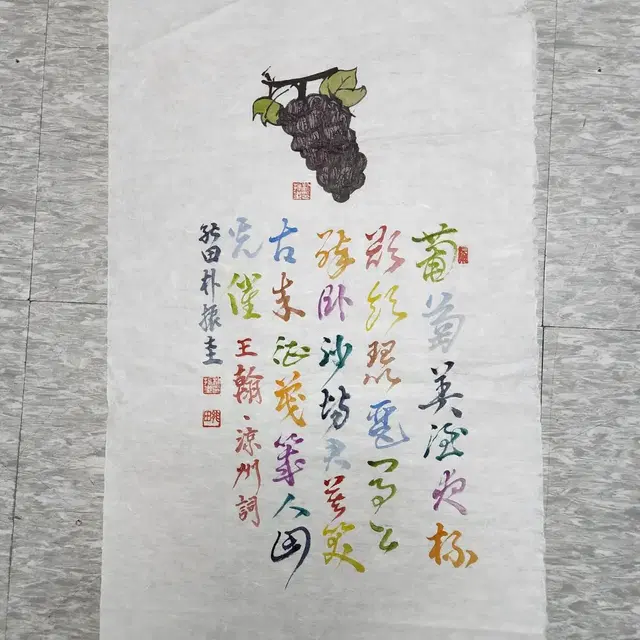 葡萄美酒夜杯
欲飲琵琶馬上
醉臥沙場君莫笑
古來征戰幾人回
光催 王翰、涼州詞
田 朴振圭